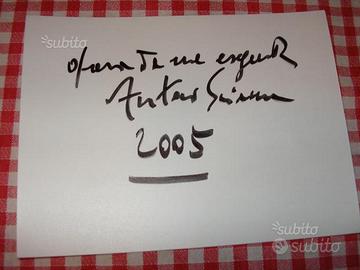 subito
opera da me eseguita
Antonio
2005
subito
subito